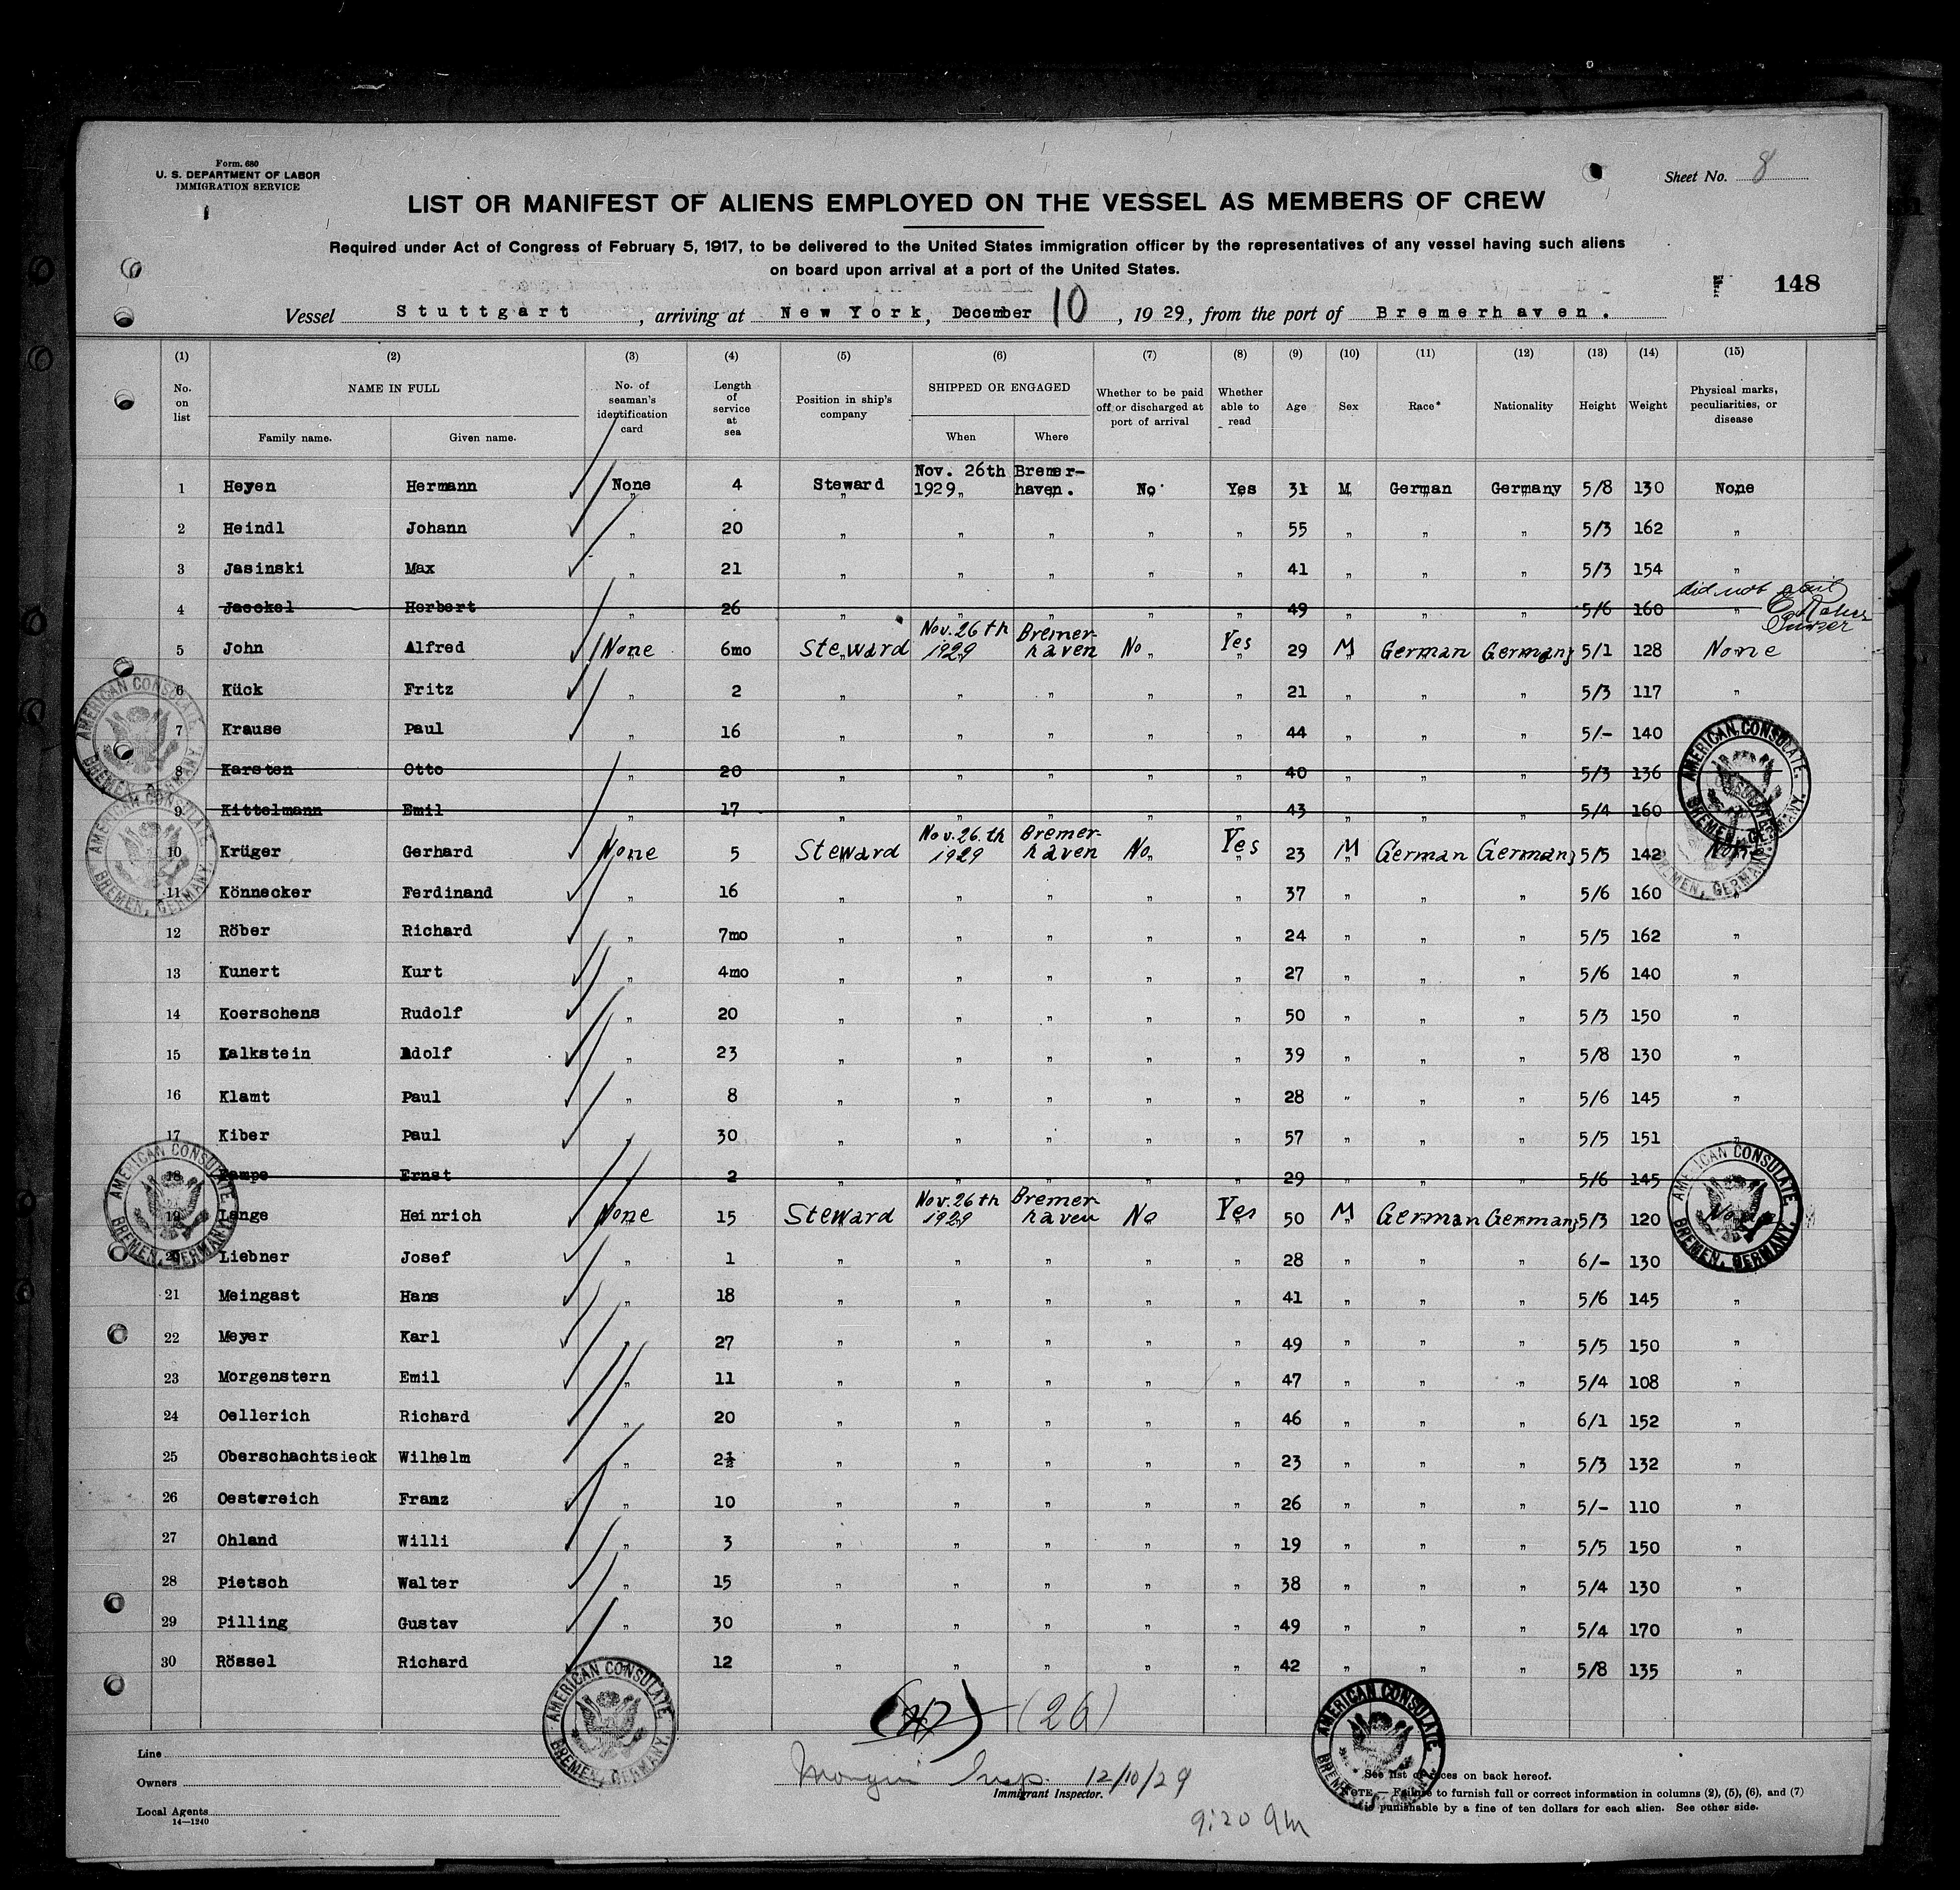 Form. 680
U. S. DEPARTMENT OF LABOR
IMMIGRATION SERVICE
Sheet No. 8
LIST OR MANIFEST OF ALIENS EMPLOYED ON THE VESSEL AS MEMBERS OF CREW
Required under Act of Congress of February 5, 1917, to be delivered to the United States immigration officer by the representatives of any vessel having such aliens
on board upon arrival at a port of the United States.
148
Vessel Stuttgart, arriving at New York, December 10, 1929, from the port of Bremerhaven.
(1) (2) (3) (4) (5) (6) (7) (8) (9) (10) (11) (12) (13) (14) (15)
No. on list NAME IN FULL Family name. Given name. No. of seaman's identification card Length of service at sea Position in ship's company SHIPPED OR ENGAGED When Where Whether to be paid off or discharged at port of arrival Whether able to read Age Sex Race* Nationality Height Weight Physical marks, peculiarities, or disease
1 Heyen Hermann None 4 Steward Nov. 26th 1929 Bremer-haven. No Yes 31 M German Germany 5/8 130 None
2 Heindl Johann " 20 " " " " " 55 " " " 5/3 162 "
3 Jasinski Max " 21 " " " " " 41 " " " 5/3 154 "
did not sail
4 Jaeckel Herbert " 26 " " " " " 49 " " " 5/6 160 "
Purser
5 John Alfred None 6mo Steward Nov. 26th 1929 Bremer-haven No Yes 29 M German Germany 5/1 128 None
6 Kück Fritz " 2 " " " " " 21 " " " 5/3 117 "
7 Krause Paul " 16 " " " " " 44 " " " 5/- 140
8 Karsten Otto " 20 " " " " " 40 " " " 5/3 136
9 Kittelmann Emil " 17 " " " " " 43 " " " 5/4 160
10 Krüger Gerhard None 5 Steward Nov. 26th 1929 Bremer-haven No Yes 23 M German Germany 5/5 142 None
11 Könnecker Ferdinand " 16 " " " " " 37 " " " 5/6 160 "
12 Röber Richard " 7mo " " " " " 24 " " " 5/5 162 "
13 Kunert Kurt " 4mo " " " " " 27 " " " 5/6 140 "
14 Koerschens Rudolf " 20 " " " " " 50 " " " 5/3 150 "
15 Kalkstein Adolf " 23 " " " " " 39 " " " 5/8 130 "
16 Klamt Paul " 8 " " " " " 28 " " " 5/6 145 "
17 Kiber Paul " 30 " " " " " 57 " " " 5/5 151 "
18 Lampe Ernst " 2 " " " " " 29 " " " 5/6 145
19 Lange Heinrich None 15 Steward Nov. 26th 1929 Bremer-haven No Yes 50 M German Germany 5/3 120 None
20 Liebner Josef " 1 " " " " " 28 " " " 6/- 130
21 Meingast Hans " 18 " " " " " 41 " " " 5/6 145 "
22 Meyer Karl " 27 " " " " " 49 " " " 5/5 150 "
23 Morgenstern Emil " 11 " " " " " 47 " " " 5/4 108 "
24 Oellerich Richard " 20 " " " " " 46 " " " 6/1 152 "
25 Oberschachtsieck Wilhelm " 2½ " " " " " 23 " " " 5/3 132 "
26 Oestereich Franz " 10 " " " " " 26 " " " 5/- 110 "
27 Ohland Willi " 3 " " " " " 19 " " " 5/5 150 "
28 Pietsch Walter " 15 " " " " " 38 " " " 5/4 130 "
29 Pilling Gustav " 30 " " " " " 49 " " " 5/4 170 "
30 Rössel Richard " 12 " " " " " 42 " " " 5/8 135 "
AMERICAN CONSULATE, BREMEN, GERMANY.
AMERICAN CONSULATE, BREMEN, GERMANY.
AMERICAN CONSULATE, BREMEN, GERMANY.
AMERICAN CONSULATE, BREMEN, GERMANY.
AMERICAN CONSULATE, BREMEN, GERMANY.
AMERICAN CONSULATE, BREMEN, GERMANY.
AMERICAN CONSULATE, BREMEN, GERMANY.
(26)
Line
Owners
Local Agents
14—1240
Insp. 12/10/29
Immigrant Inspector.
9:20 am
See list of races on back hereof.
NOTE.—Failure to furnish full or correct information in columns (2), (5), (6), and (7)
is punishable by a fine of ten dollars for each alien. See other side.